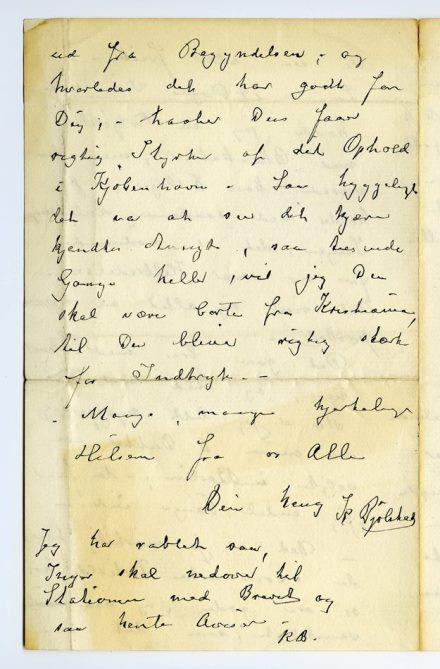 ud fra Begyndelsen, og
hvorledes det har gaaet for
Dig, - haaber Du faar
rigtig Styrke af det Ophold
i Kjøbenhavn - Saa hyggeligt
det var at se dit kjære
kjendte Ansigt, saa
Gange heller, vil jeg Du
skal være borte fra Kristiania,
til Du bliver rigtig stærk
for Indtryk. -
- Mange, mange hjertelige
Hilsen fra os Alle
Din heng K.
Jeg har rablet saa,
Inger skal nedover til
Stationen med Brevet og
saa hente Aviser -
KB.